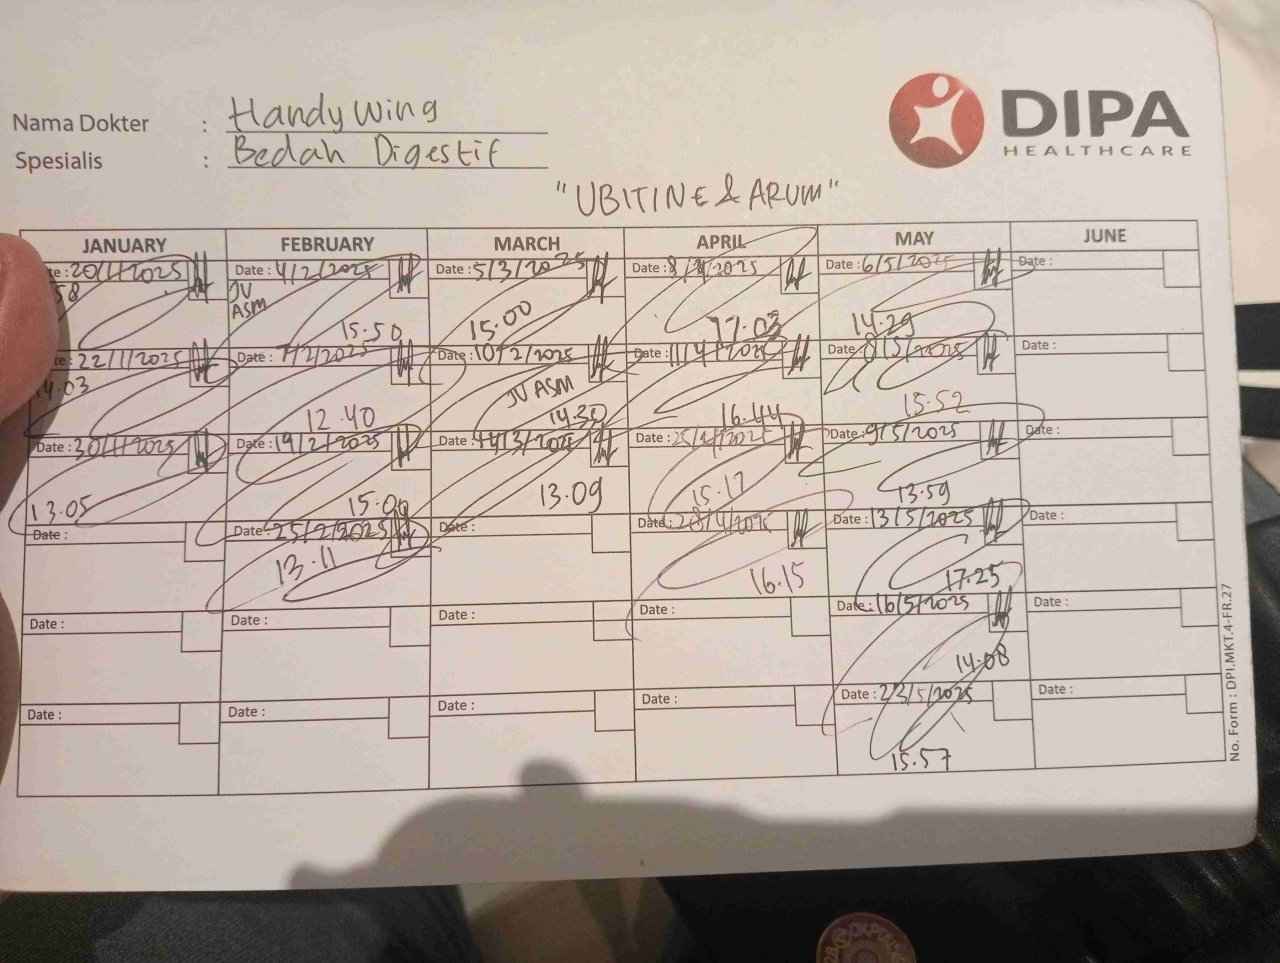 Nama Dokter : Handy Wing
Spesialis : Bedah Digestif
DIPA
HEALTHCARE
"UBITINE & ARUM"
JANUARY FEBRUARY MARCH APRIL MAY JUNE
te: 20/1/2025 Date : 4/2/2025 Date : 5/3/2025 Date : 8/4/2025 Date : 6/5/2025 Date :
58 JV ASM 15.50 15.00 17.03 14.29
te : 22/1/2025 Date : 7/2/2025 Date : 10/2/2025 Date : 11/4/2025 Date : 8/5/2025 Date :
14.03 12.40 JV ASM 14.30 16.44 15.52
Date : 30/1/2025 Date : 19/2/2025 Date : 14/3/2025 Date : 25/4/2025 Date : 9/5/2025 Date :
13.05 15.00 13.09 15.17 13.59
Date : Date : 25/2/2025 Date : Date : 28/4/2025 Date : 13/5/2025 Date :
13.11 16.15 17.25
Date : Date : Date : Date : Date : 16/5/2025 Date :
14.08
Date : Date : Date : Date : Date : 23/5/2025 Date :
15.57
No. Form : DPI.MKT.4-FR.27